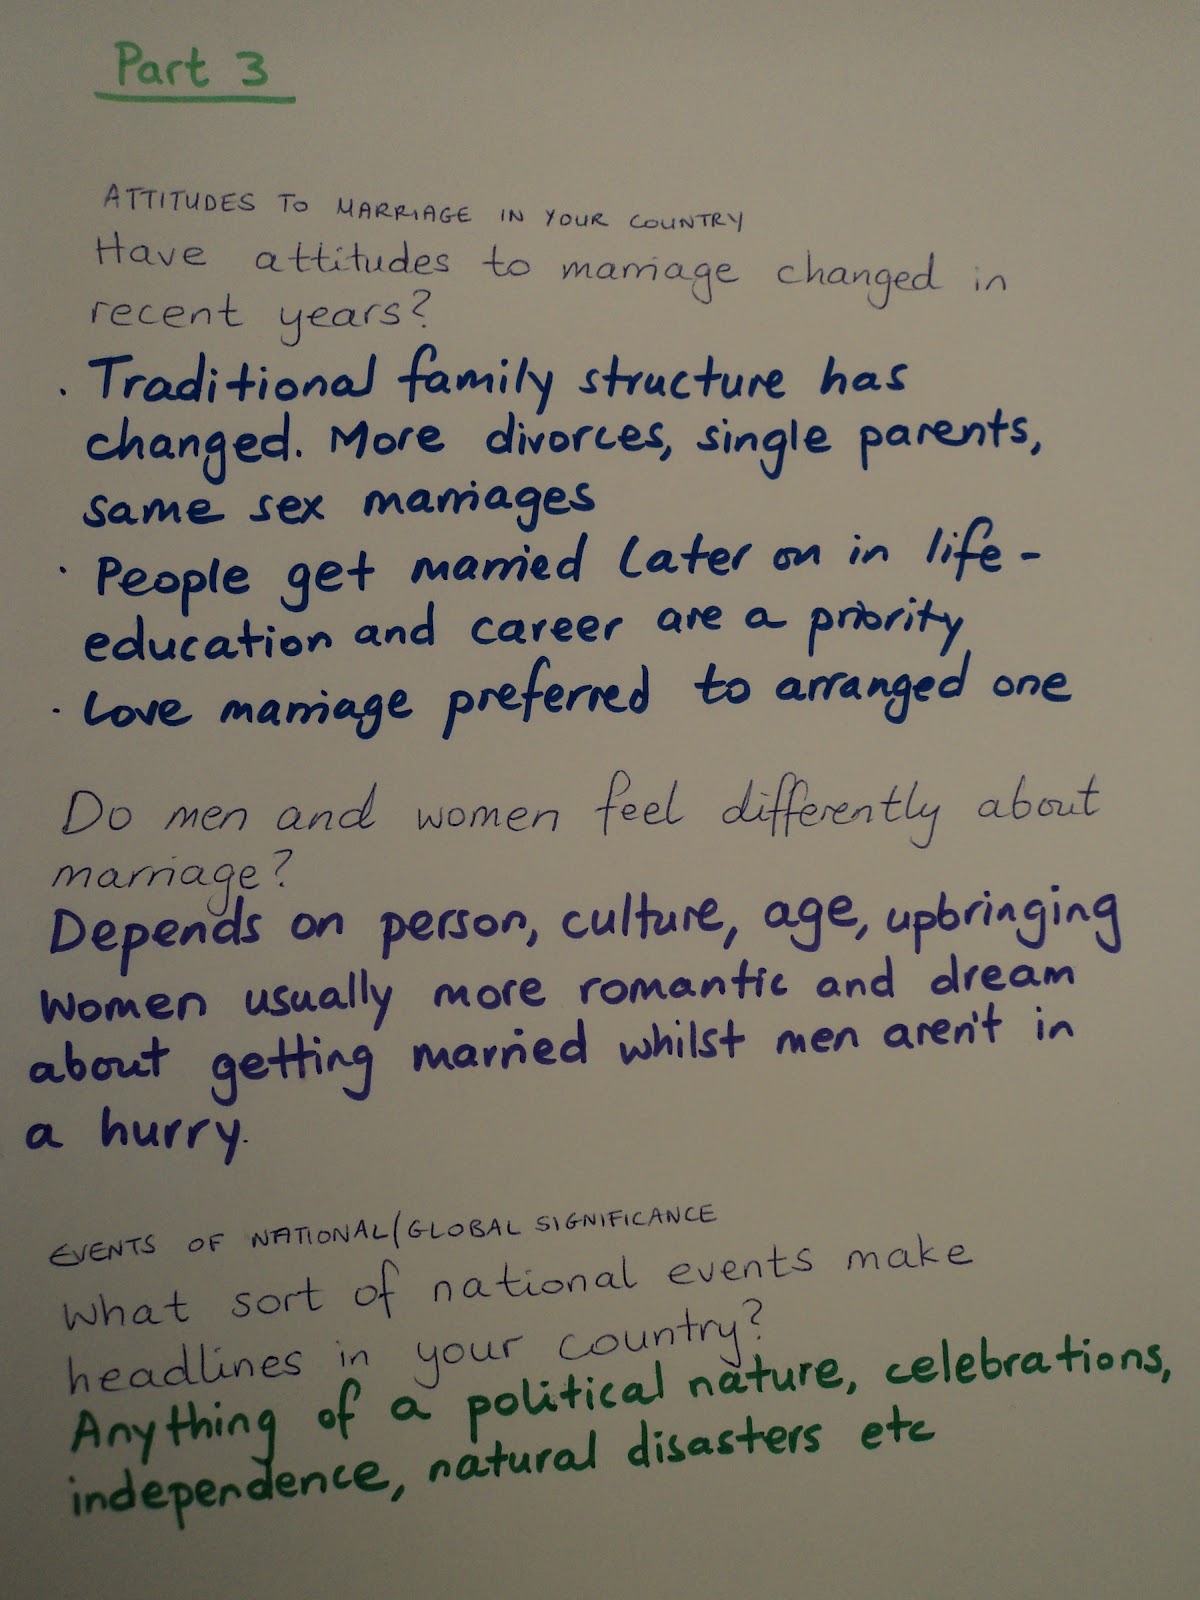 Part 3
ATTITUDES TO MARRIAGE IN YOUR COUNTRY
Have attitudes to marriage changed in
recent years?
· Traditional family structure has
changed. More divorces, single parents,
same sex marriages
· People get married later on in life -
education and career are a priority
· Love marriage preferred to arranged one
Do men and women feel differently about
marriage?
Depends on person, culture, age, upbringing
Women usually more romantic and dream
about getting married whilst men aren't in
a hurry.
EVENTS OF NATIONAL/GLOBAL SIGNIFICANCE
What sort of national events make
headlines in your country?
Anything of a political nature, celebrations,
independence, natural disasters etc